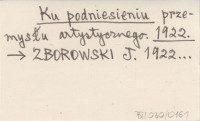 Ku podniesieniu prze-
mysłu artystycznego. 1922.
→ ZBOROWSKI J. 1922...